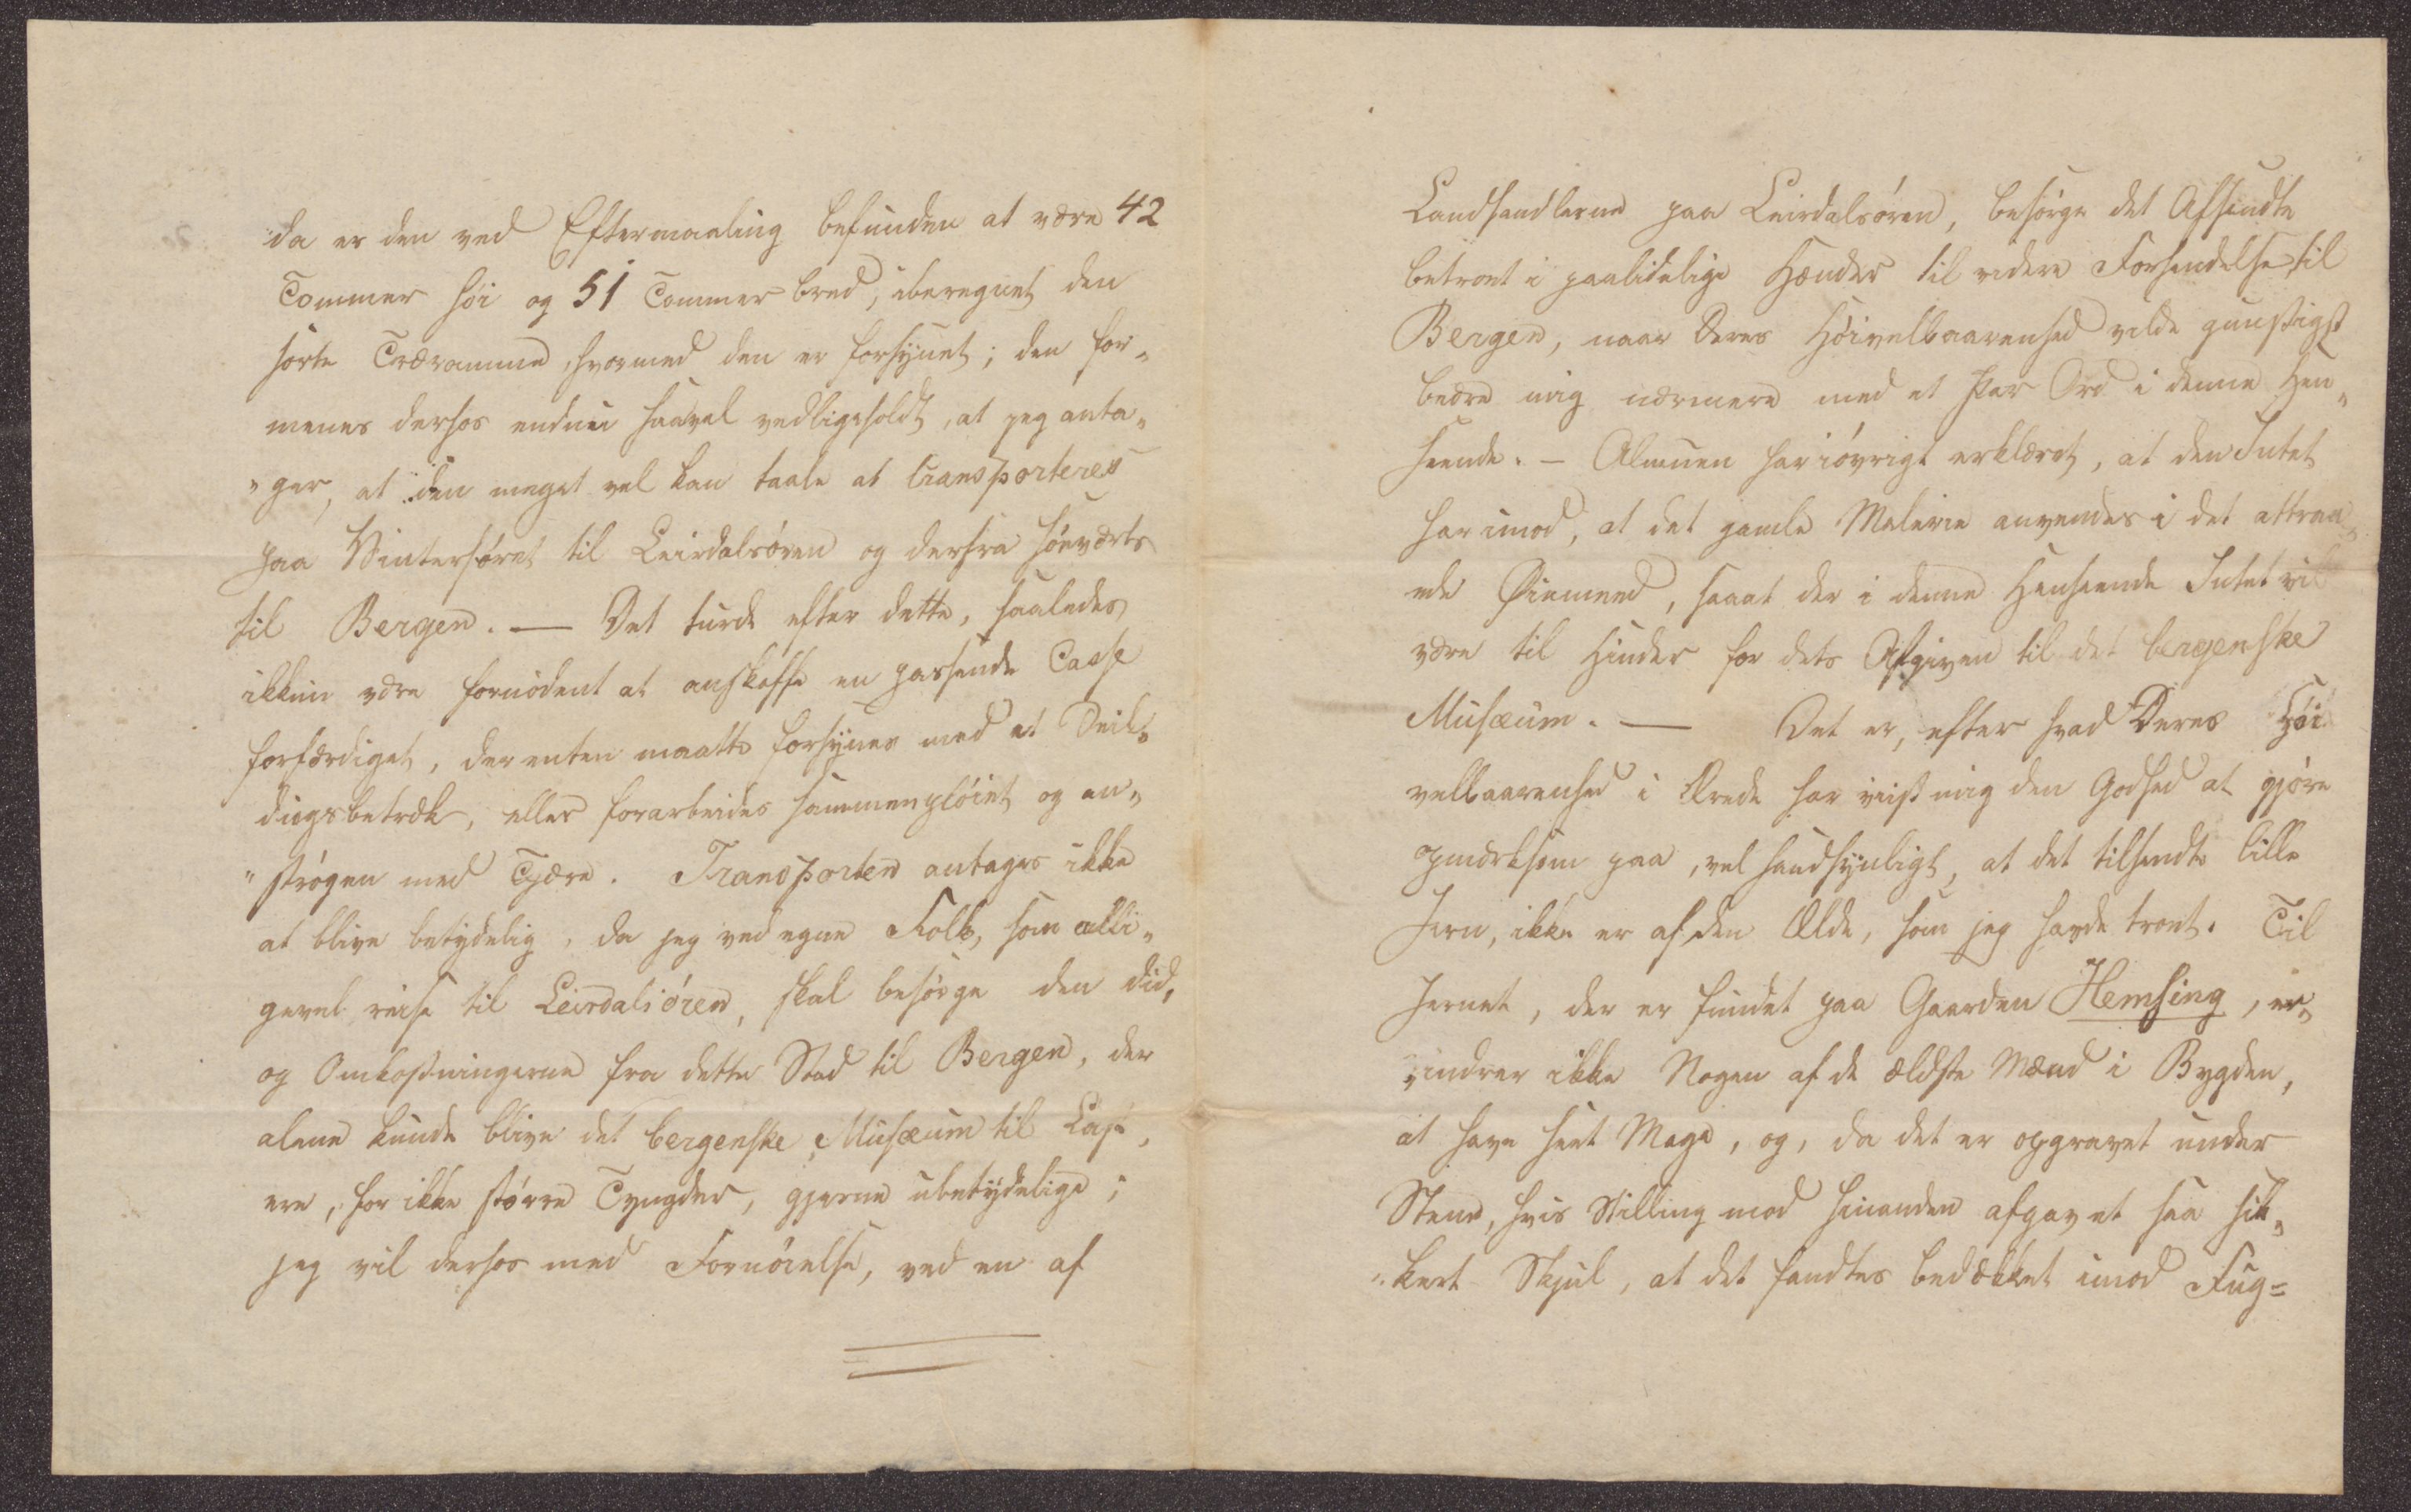 da er den ved Eftermaaling befunden at være 42
Tommer høi og 51 Tommer bred, iberegnet den
sorte Træramme, hvormed den er forsynet; den for„
menes derhos endnu saavel vedligeholdt, at jeg anta„
„ger, at den meget vel kan taale at transporteres
paa Vinterføret til Leirdalsøren og derfra søeværts
til Bergen. — Det turde efter dette, saaledes
ikkun være fornødent at anskaffe en passende Casse
forfærdiget, der enten maatte forsynes med et Seil„
dugsbetræk, eller forarbeides sammenpløiet og an„
„strøgen med Tjære. Transporten antages ikke
at blive betydelig, da jeg ved egne Folk, som alli„
gevel reise til Leirdalsøren, skal besørge den did,
og Omkostningerne fra dette Sted til Bergen, der
alene kunde blive det bergenske Musæum til Last,
ere, for ikke større Tyngder, gjerne ubetydelige;
jeg vil derhos med Fornøielse, ved en af
Landhandlerne paa Leirdalsøren, besørge det Afsendte
betroet i paalidelige Hænder til videre Forsendelse til
Bergen, naar Deres Høivelbaarenhed vilde gunstigst
beære mig nærmere med et Par Ord i denne Hen„
seende. — Almuen har iøvrigt erklæret, at den Intet
har imod, at det gamle Malerie anvendes i det attraa„
ede Øiemeed, saaat der i denne Henseende Intet vil
være til Hinder for dets Afgiven til det bergenske
Musæum. — Det er, efter hvad Deres Høi
velbaarenhed i Brede har viist mig den Godhed at gjøre
opmærksom paa, vel sandsynligt, at det tilsendte lille
Jern, ikke er af den Ælde, som jeg havde troet. Til
Jernet, der er fundet paa Gaarden Hemsing, er„
indrer ikke Nogen af de ældste Mænd i Bygden,
at have seet Mage, og, da det er opgravet under
Stene, hvis Stilling mod hinanden afgav et saa sik„
„kert Skjul, at det fandtes bedækket imod Fug=